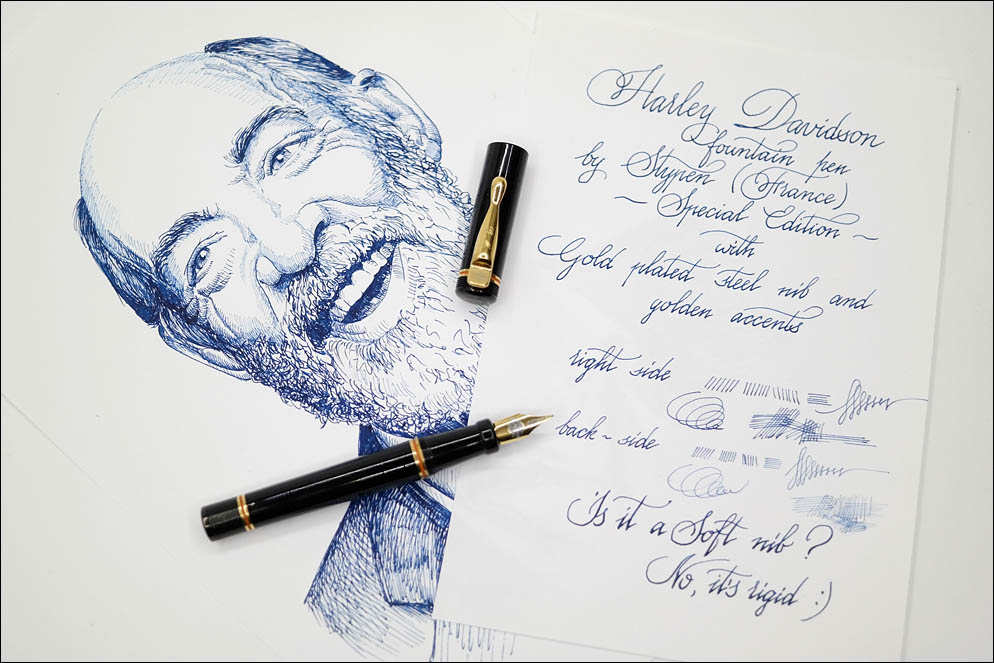 Harley Davidson
fountain pen
by Stypen (France)
~ Special Edition ~
with
Gold plated steel nib and
golden accents
right side
back ~ side
Is it a Soft nib ?
No, it's rigid :)